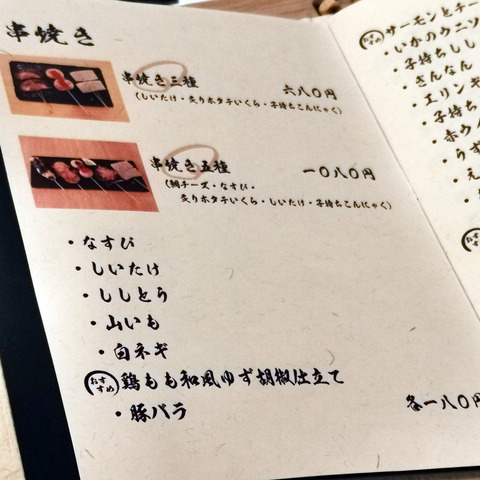 串焼き
串焼き三種 六八〇円
(しいたけ・炙りホタテいくら・子持ちこんにゃく)
串焼き五種 一〇八〇円
(鯛チーズ・なすび・
炙りホタテいくら・しいたけ・子持ちこんにゃく)
・なすび
・しいたけ
・ししとう
・山いも
・白ネギ
おすすめ 鶏もも和風ゆず胡椒仕立て
・豚バラ
各一八〇円
おすすめ サーモンとチー
・いかのウニソ
・子持ちしし
・ぎんなん
・エリンギ
・子持ち
・ホウ
・うず
・え